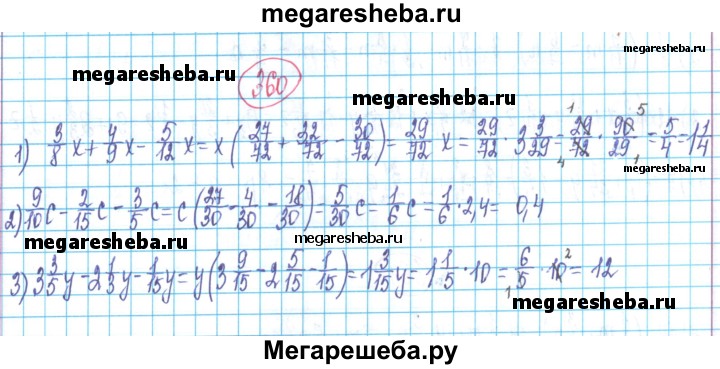 megaresheba.ru
megaresheba.ru
360
megaresheba.ru
1) 3/8 x + 4/9 x - 5/12 x = x (27/72 + 32/72 - 30/72) = 29/72 x = 29/72 · 3 3/29 = 29/72 · 90/29 = 5/4 = 1 1/4
megaresheba.ru
2) 9/10 c - 2/15 c - 3/5 c = c (27/30 - 4/30 - 18/30) = 5/30 c = 1/6 c = 1/6 · 2,4 = 0,4
megaresheba.ru
megaresheba.ru
3) 3 3/5 y - 2 1/3 y - 1/15 y = y (3 9/15 - 2 5/15 - 1/15) = 1 3/15 y = 1 1/5 · 10 = 6/5 · 10 = 12
megaresheba.ru
Мегарешеба.ру